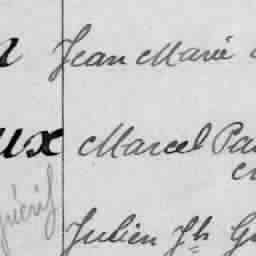 Jean Marie
ux Marcel Pa
Julien Jh G